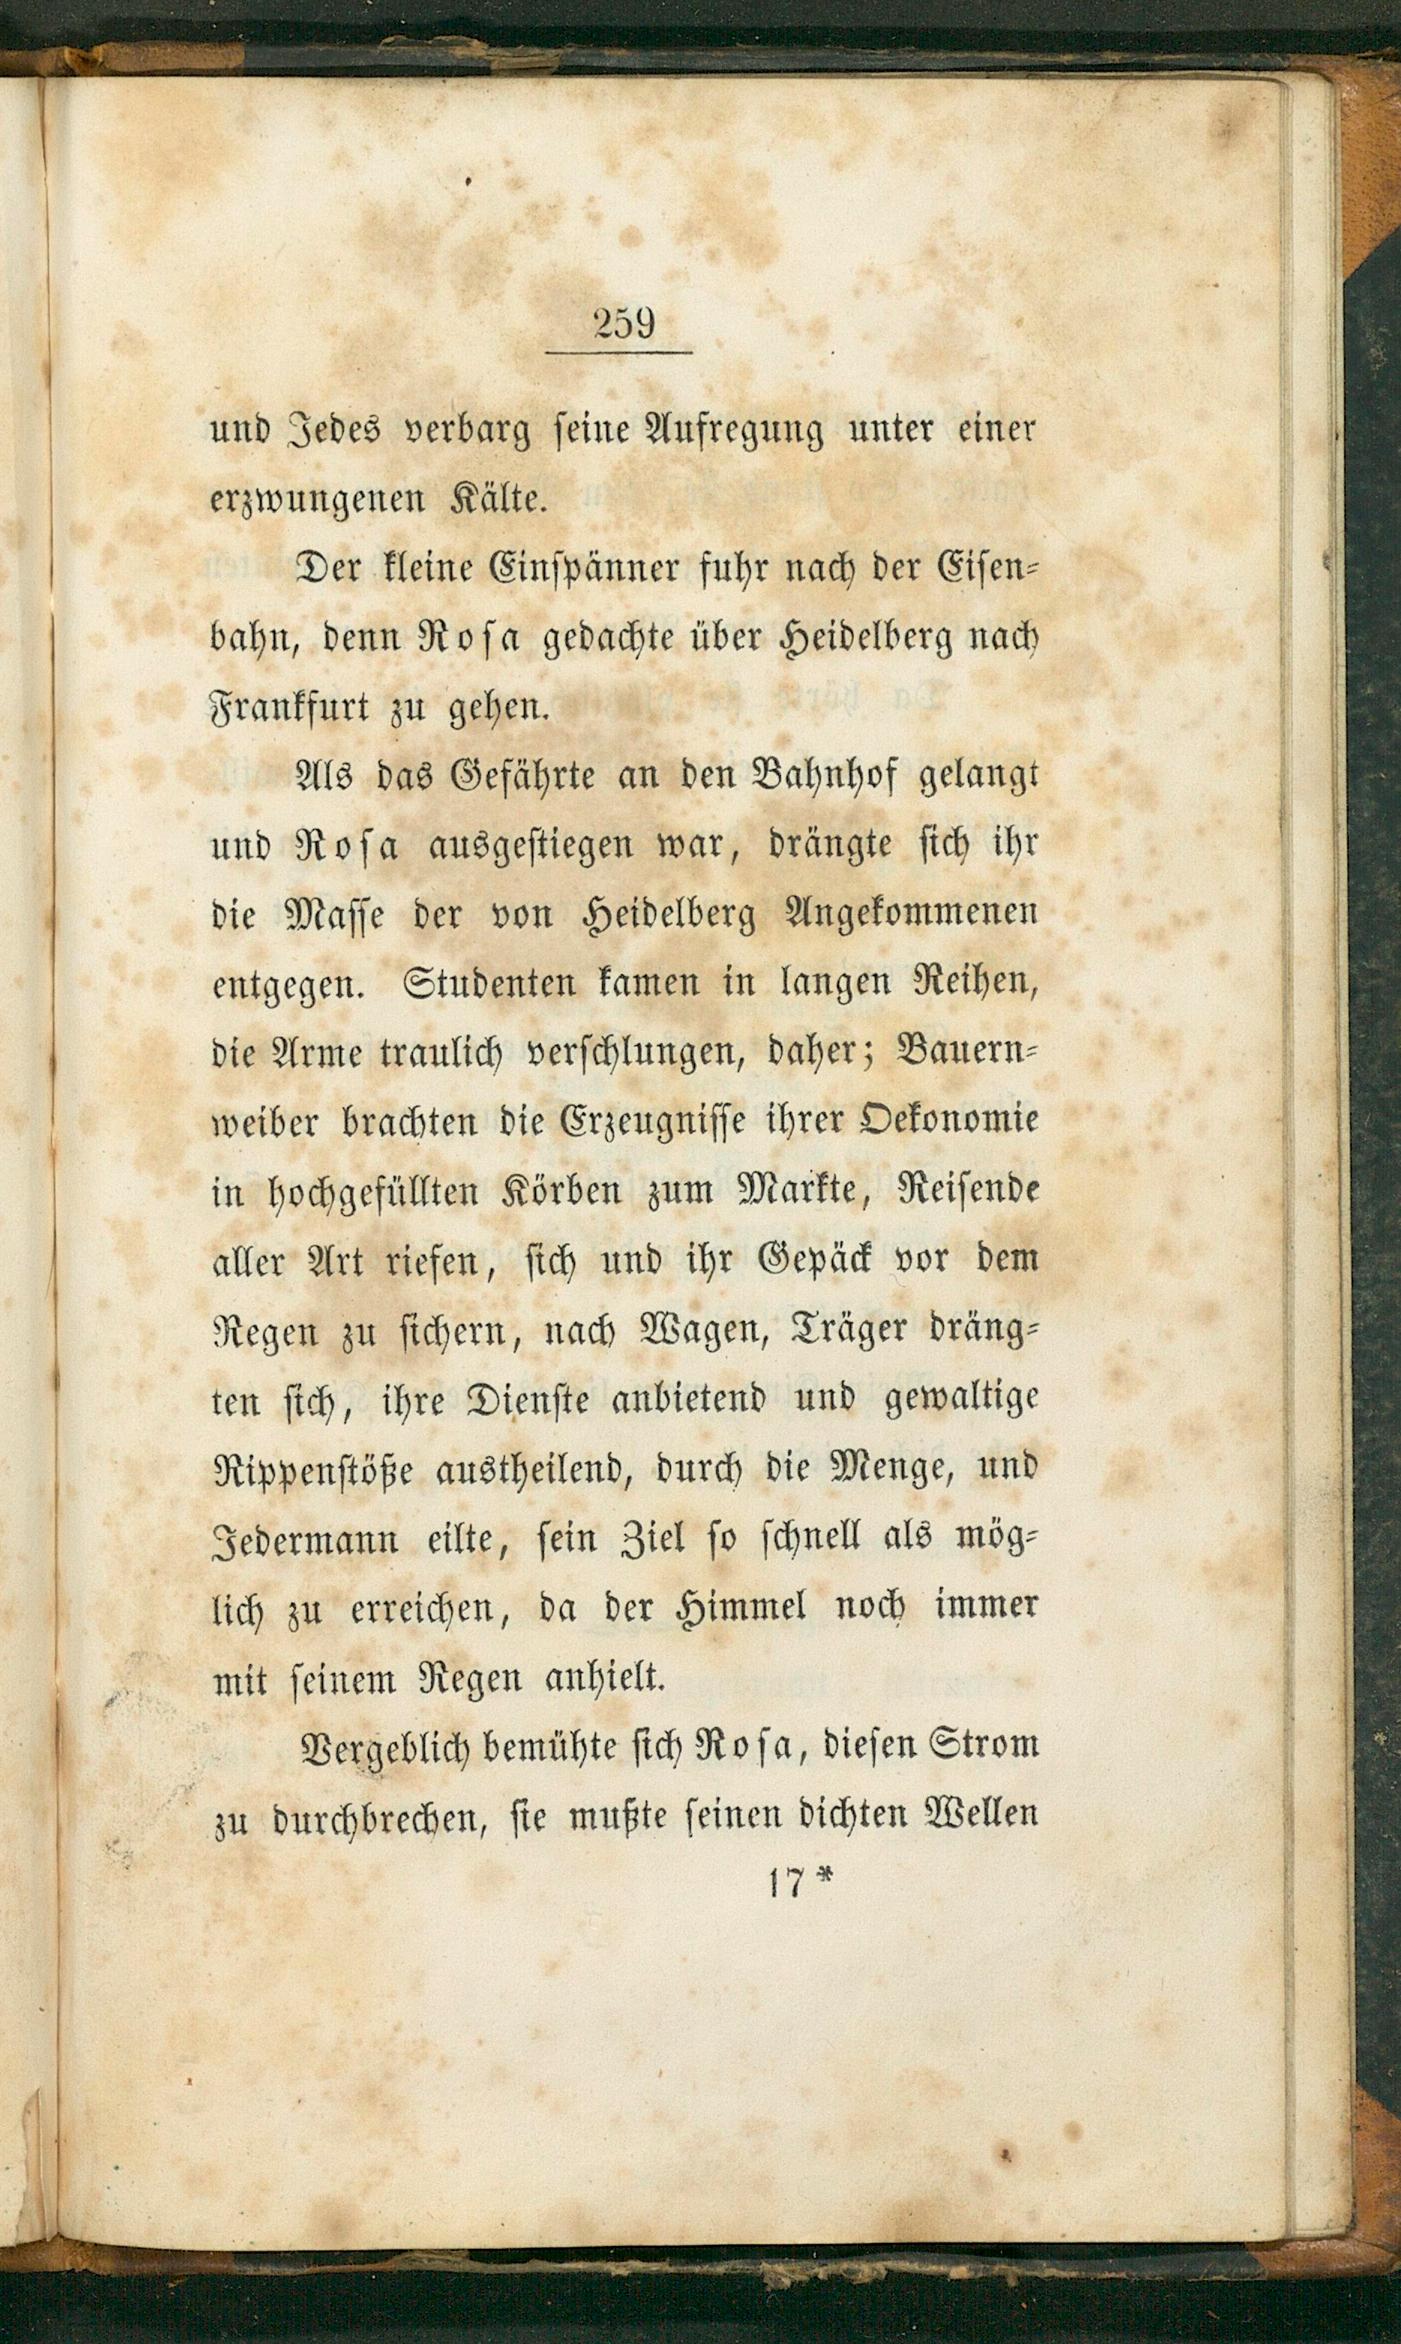 259
und Jedes verbarg seine Aufregung unter einer
erzwungenen Kälte.
Der kleine Einspänner fuhr nach der Eisen-
bahn, denn Rosa gedachte über Heidelberg nach
Frankfurt zu gehen.
Als das Gefährte an den Bahnhof gelangt
und Rosa ausgestiegen war, drängte sich ihr
die Masse der von Heidelberg Angekommenen
entgegen. Studenten kamen in langen Reihen,
die Arme traulich verschlungen, daher; Bauern-
weiber brachten die Erzeugnisse ihrer Oekonomie
in hochgefüllten Körben zum Markte, Reisende
aller Art riefen, sich und ihr Gepäck vor dem
Regen zu sichern, nach Wagen, Träger dräng-
ten sich, ihre Dienste anbietend und gewaltige
Rippenstöße austheilend, durch die Menge, und
Jedermann eilte, sein Ziel so schnell als mög-
lich zu erreichen, da der Himmel noch immer
mit seinem Regen anhielt.
Vergeblich bemühte sich Rosa, diesen Strom
zu durchbrechen, sie mußte seinen dichten Wellen
17*